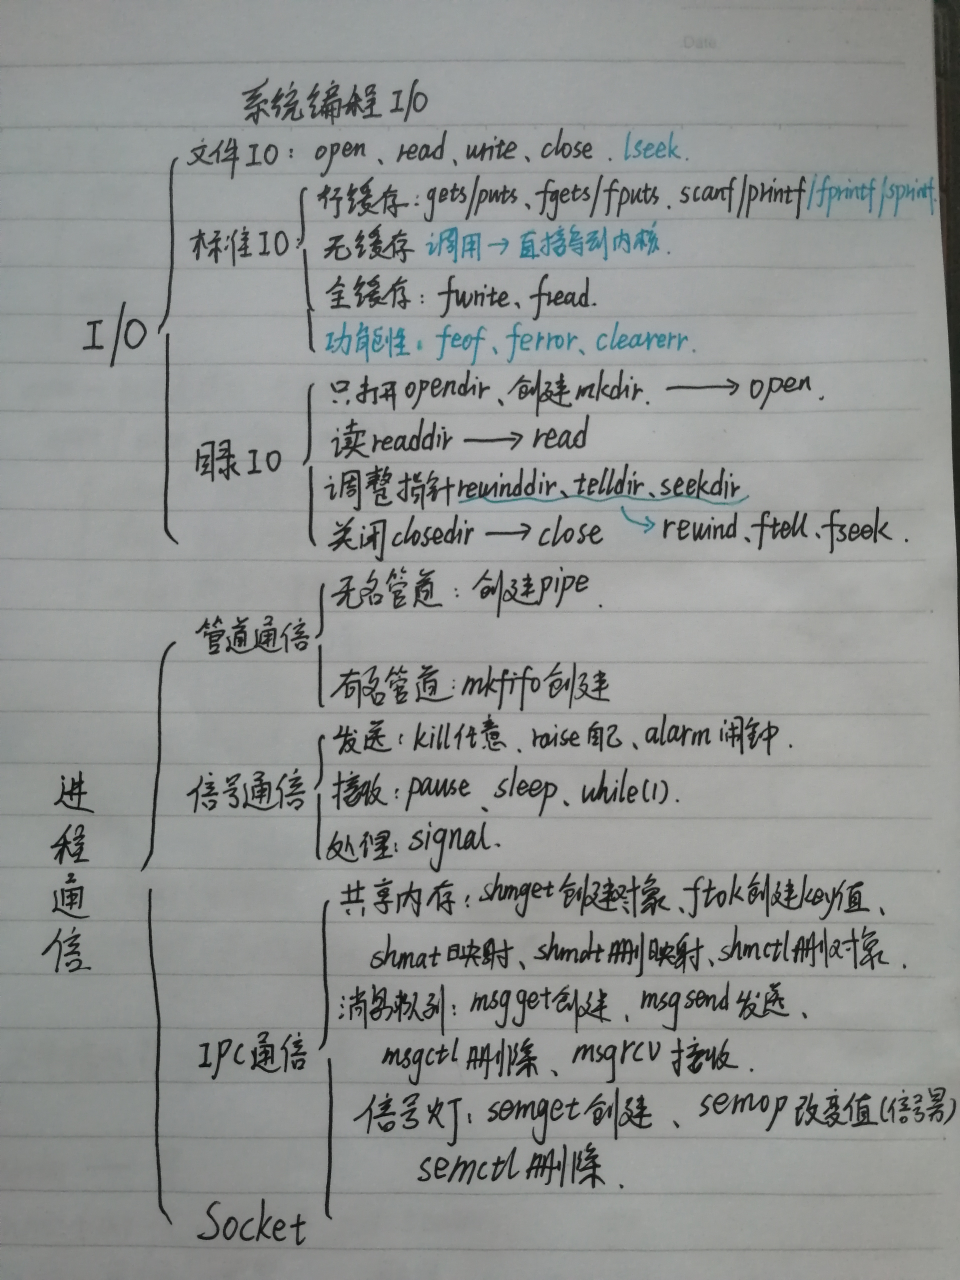 Date
系统编程 I/O
文件IO：open、read、write、close、lseek.
I/O
标准IO
行缓存：gets/puts、fgets/fputs、scanf/printf/fprintf/sprintf.
无缓存 调用→直接写到内核.
全缓存：fwrite、fread.
功能性：feof、ferror、clearerr.
目录IO
只打开opendir、创建mkdir. → open.
读readdir → read
调整指针rewinddir、telldir、seekdir
→ rewind、ftell、fseek.
关闭closedir → close
进程通信
管道通信
无名管道：创建pipe.
有名管道：mkfifo创建
信号通信
发送：kill任意、raise自己、alarm闹钟.
接收：pause、sleep、while(1).
处理：signal.
IPC通信
共享内存：shmget创建对象、ftok创建key值、
shmat映射、shmdt删映射、shmctl删对象.
消息队列：msgget创建、msgsend发送、
msgctl删除、msgrcv接收.
信号灯：semget创建、semop改变值(信号量)
semctl删除.
Socket